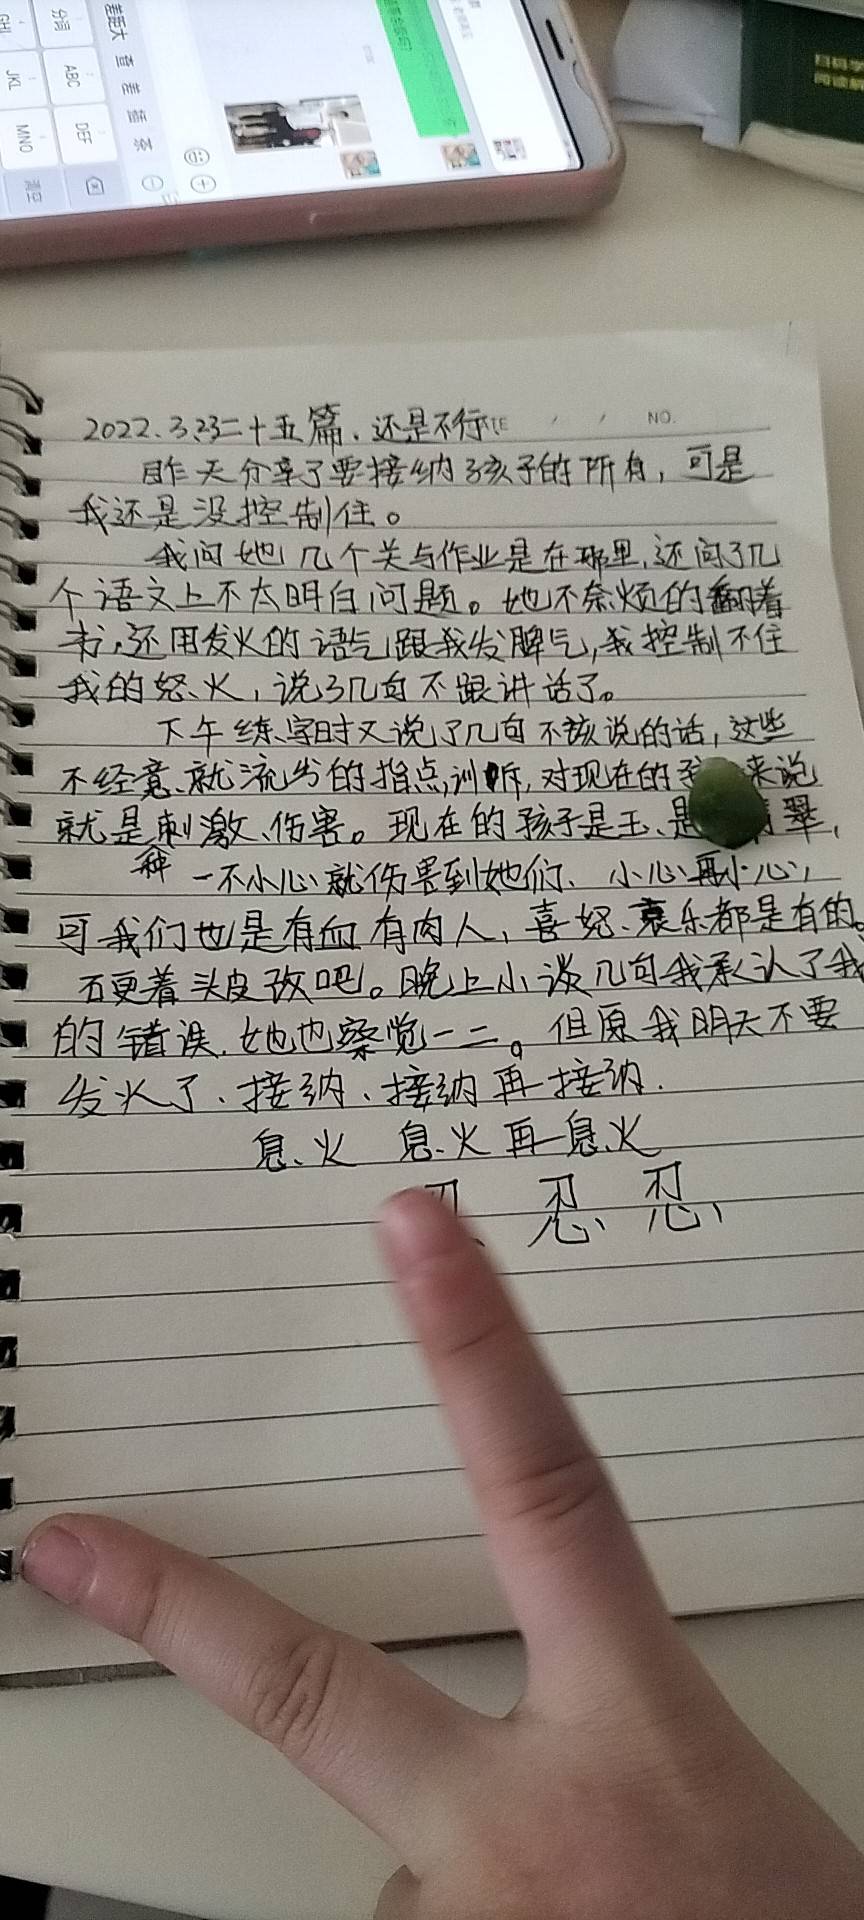 分词
ABC
DEF
GHI
JKL
MNO
清空
差距大 查 差
NO.
2022.3.23二十五篇.还是不行
昨天分享了要接纳孩子的所有,可是
我还是没控制住。
我问她几个关与作业是在那里,还问了几
个语文上不太明白问题。她不奈烦的翻着
书,还用发火的语气跟我发脾气,我控制不住
我的怒火,说了几句不跟讲话了。
下午练字时又说了几句不该说的话,这些
不经意、就流出的指点,训斥,对现在的 来说
就是刺激、伤害。现在的孩子是玉、是 翠,
一不小心就伤害到她们、小心再小心,
可我们也是有血有肉人,喜怒、哀乐都是有的。
石更着头皮改吧。晚上小谈几句我承认了我
的错误.她也察觉一二。但原我明天不要
发火了、接纳、接纳再接纳.
息火 息火再息火
忍 忍